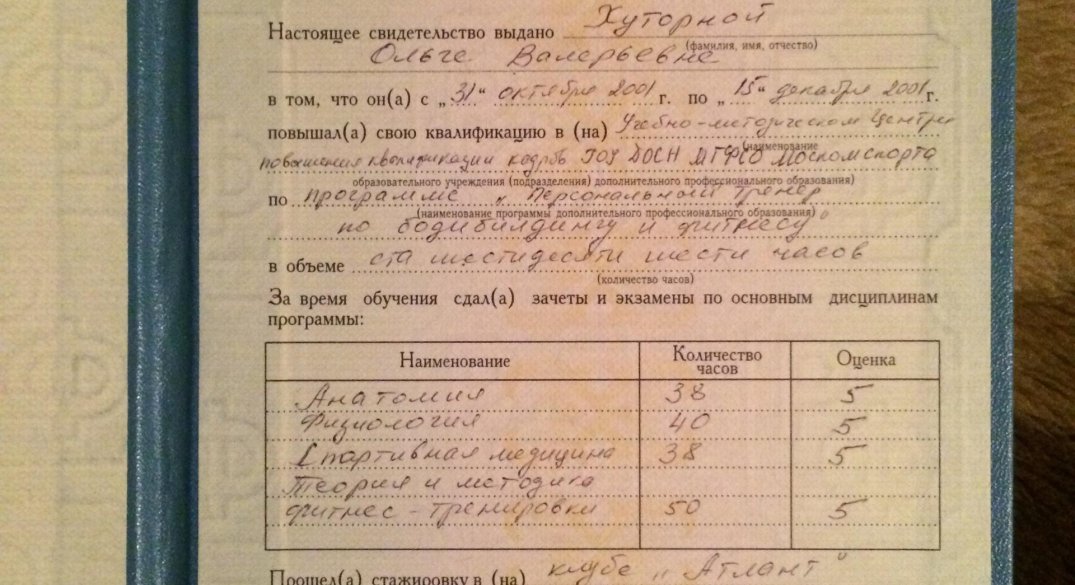 Настоящее свидетельство выдано Хуторной
(фамилия, имя, отчество)
Ольге Валерьевне
в том, что он(а) с „31“ октября 2001 г. по „15“ декабря 2001 г.
повышал(а) свою квалификацию в (на) Учебно-методическом Центре
(наименование
повышения квалификации кадров ГОУ ДОСН МГФСО Москомспорта
образовательного учреждения (подразделения) дополнительного профессионального образования)
по программе „Персональный тренер
(наименование программы дополнительного профессионального образования)
по бодибилдингу и фитнесу“
в объеме ста шестидесяти шести часов
(количество часов)
За время обучения сдал(а) зачеты и экзамены по основным дисциплинам
программы:
Наименование Количество часов Оценка
Анатомия 38 5
Физиология 40 5
Спортивная медицина 38 5
Теория и методика
фитнес-тренировки 50 5
Прошел(а) стажировку в (на) клубе „Атлант“